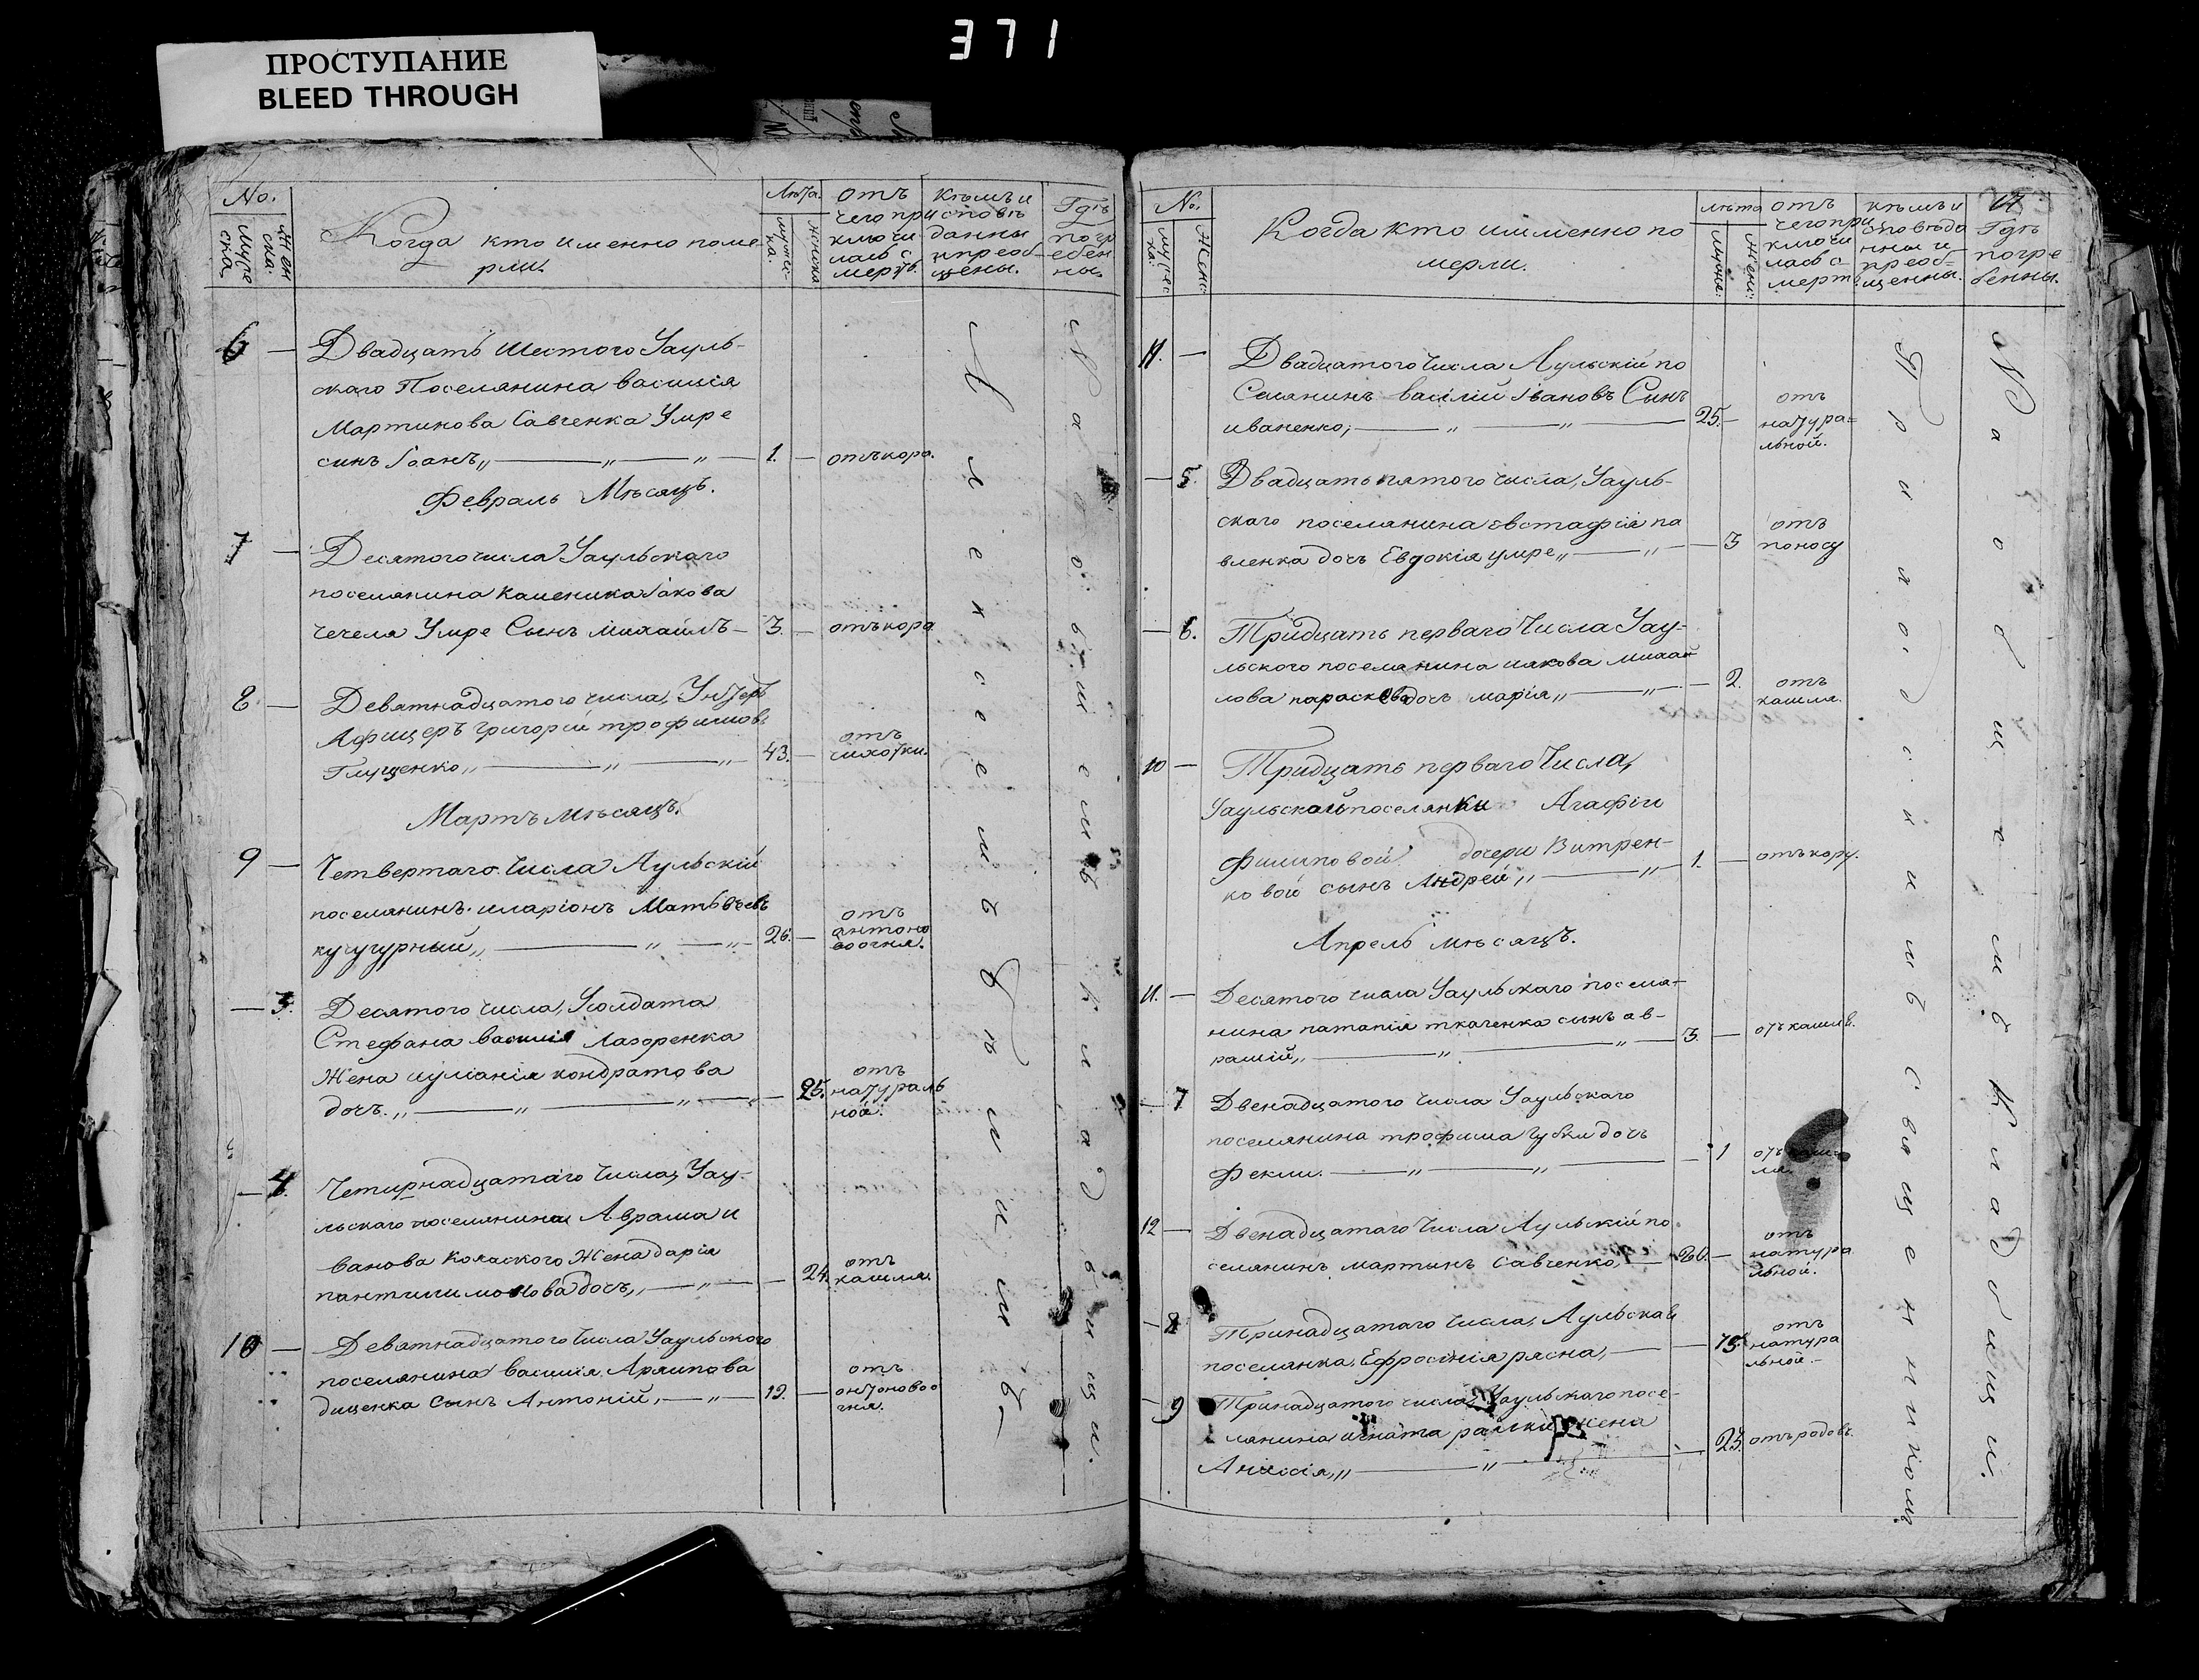 371
ПРОСТУПАНИЕ
BLEED THROUGH
No.
мужеска.
женска.
Когда кто именно поме-
рли.
Лѣта.
мужеска.
женска
отъ
чего при
ключи
лась с
мерть.
Кѣмъ и
сповѣ
данны
и преоб-
щены.
Гдѣ
погр
ебен
ны.
6 — Двадцать шестого Уауль-
скаго Поселянина василія
Мартинова Савченка Умре
синъ Іоанъ „ — „ — „ — 1. — отъ кора.
Февраль Мѣсяцъ.
7 — Десятого числа Уаульскаго
поселянина каменика Іакова
чечеля Умре Сынъ михаилъ — 3. — отъ кора
8 — Девятнадцатого числа, Унтеръ
Афицеръ григорій трофимовъ
Глущенко „ — „ — „ 43. — отъ
чихотки.
Мартъ мѣсяцъ.
9 — Четвертаго Числа Аульскій
поселянинъ иларіонъ Матвѣевъ
кучугурный „ — „ — „ — 26. — отъ
антоно
воогня.
— 3. Десятого числа, Усолдата
Стефана василія Лазоренка
Жена иулианія кондратова
дочъ. „ — „ — „ — 25. отъ
натураль
ной.
— 4. Четирнадцатаго Числа, Уау-
льскаго поселянина Аврама и
ванова Коляского Жена дарія
пантилимонова дочъ, „ — „ — — 24. отъ
кашля.
10 — Деватнадцатого Числа Уаульского
поселянина василия Архипова
диценка Сынъ Антоній, — „ — 12. — отъ
онтоновоо
гня.
Алексеемъ
На обшемъ кладбищи.
No.
мужес:
ка.
Женс:
Когда кто имменно по
мерли.
лѣта
мужс:
женс:
отъ
чего при
ключи
лась с
мерт.
кѣмъ и
споввѣда
нны и
преоб-
щенны.
И
Гдѣ
погре
бенны.
11. — Двадцатого Числа Аульскій по
Селянинъ василій Івановъ Синъ
иваненко; — „ — „ — 25. — отъ
натура=
льной.
— 5. Двадцать пятого числа, Уауль-
скаго поселянина евстафія па
вленка дочъ Евдокія умре „ — „ — — 3 отъ
поносу
— 6. Тридцать перваго Числа Уау-
льского поселянина иякова михай
лова параскева дочъ марія „ — „ — — 2. отъ
кашля.
10 — Тридцать перваго Числа,
Уаульской поселянки Агафіи
Филиповой дочери Витрен-
ковой сынъ Андрей „ — „ — 1. — отъ кору.
Апрель мѣсяцъ.
11. — Десятого числа Уаульскаго поселя-
нина патапія ткаченка синъ ав-
рамій „ — „ — „ — 3. — отъ кашля.
— 7 Двенадцатого числа Уаульскаго
поселянина трофима губки дочъ
Фекли. — „ — „ — — 1 отъ каш-
ля.
12 — Двенадцатаго Числа Аульскій по
селянинъ мартинъ Савченко, — 60. — отъ
натура
льной.
— 8 Тринадцатаго Числа, Аульская
поселянка, Ефросинія расна, — — 75. отъ
натура
льной. —
— 9 Тринадцатого числа, Уаульскаго посе-
лянина игната райки жена
Анисія, „ — „ — — 25. отъ родовъ.
Приходскимъ Священникомъ
На общемъ Кладбищи.